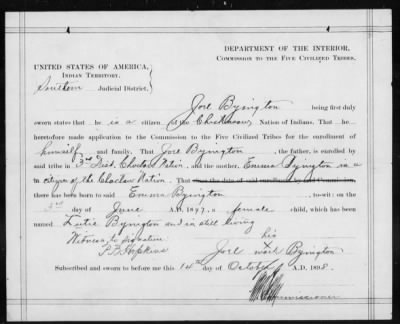 DEPARTMENT OF THE INTERIOR,
COMMISSION TO THE FIVE CIVILIZED TRIBES.
UNITED STATES OF AMERICA,
INDIAN TERRITORY.
Southern Judicial District.
Joel Byington being first duly
sworn states that he is a citizen of the Chickasaw Nation of Indians. That he
heretofore made application to the Commission to the Five Civilized Tribes for the enrollment of
himself and family. That Joel Byington, the father, is enrolled by
said tribe in 3rd Dist. Choctaw Nation, and the mother, Emma Byington is a
citizen of the Choctaw Nation. That since the date of said enrollment by said Commission,
there has been born to said Emma Byington, to-wit: on the
3rd day of June A.D. 1897, a female child, which has been
named Byington and is still living
Witness to signature his
P.B. Hopkins Joel mark Byington
Subscribed and sworn to before me this 14th day of October A.D. 1898.
Commissioner